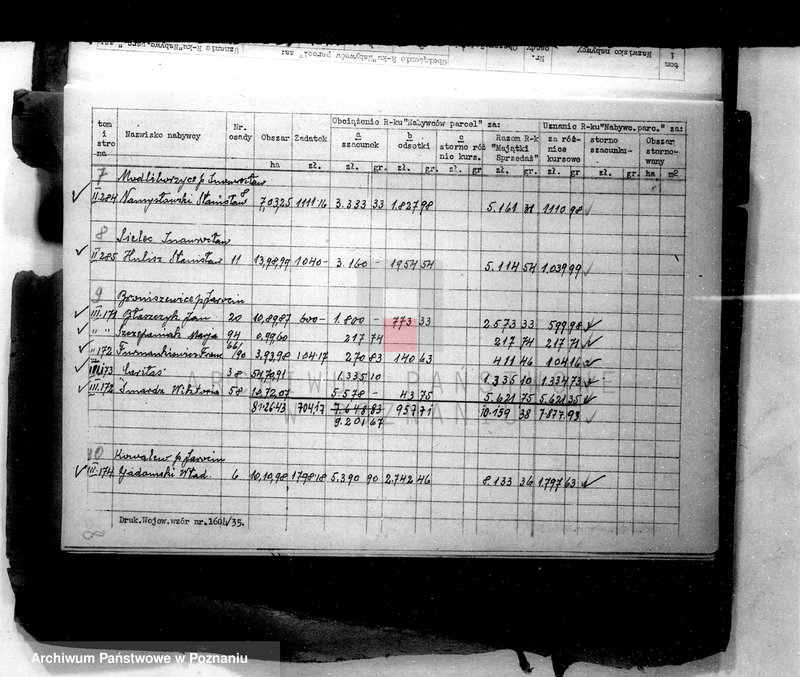 tom i strona Nazwisko nabywcy Nr. osady Obszar Zadatek Obciążenie R-ku "Nabywców parcel" za: Uznanie R-ku "Nabywc.parc." za:
a szacunek b odsetki c storno róż nic kurs. Razem R-k "Majątki Sprzedaż" za róż-nice kursowe storno szacunku- Obszar storno-wany
ha zł. zł. gr. zł. gr. zł. gr zł. gr. zł. gr. zł. gr. ha m²
7 Modliborzyce p. Inowrocław
II.284 Namysłowski Stanisław 7,03,25 1111.16 3.333 33 1.827 98 5.161 31 1110 98
8 Sielec Inowrocław
II.285 Hulisz Stanisław 11 13,98,99 1040- 3.160 - 1954 54 5.114 54 1.039 99
9 Broniszewice p. Jarocin
III.171 Błaszczyk Jan 20 10,89,87 600- 1.800 - 773 33 2.573 33 599 98
" " Szczepaniak Marja 94 0,99,60 217 74 217 74 217 71
" 172 Furmankiewicz Franc. 66/90 3,93,98 104.17 270 83 140 63 411 46 104 16
III.173 "Caritas" 38 54,70,91 1.335 10 1.335 10 1.334 73
III.172 Smardz Wiktoria 58 10,72,07 5.578 - 43 75 5.621 75 5.621 35
81.26.43 704.17 7.648 83 957 71 10.159 38 7.877.93
9.201 67
10 Kowalew p. Jarocin
III.174 Gadomski Wład. 6 10,10,98 1798.18 5.390 90 2.742 46 8.133 36 1.797 63
Druk.Wojew.wzór nr.160b/35.
ARCHIWUM PAŃSTWOWE
W POZNANIU
Archiwum Państwowe w Poznaniu